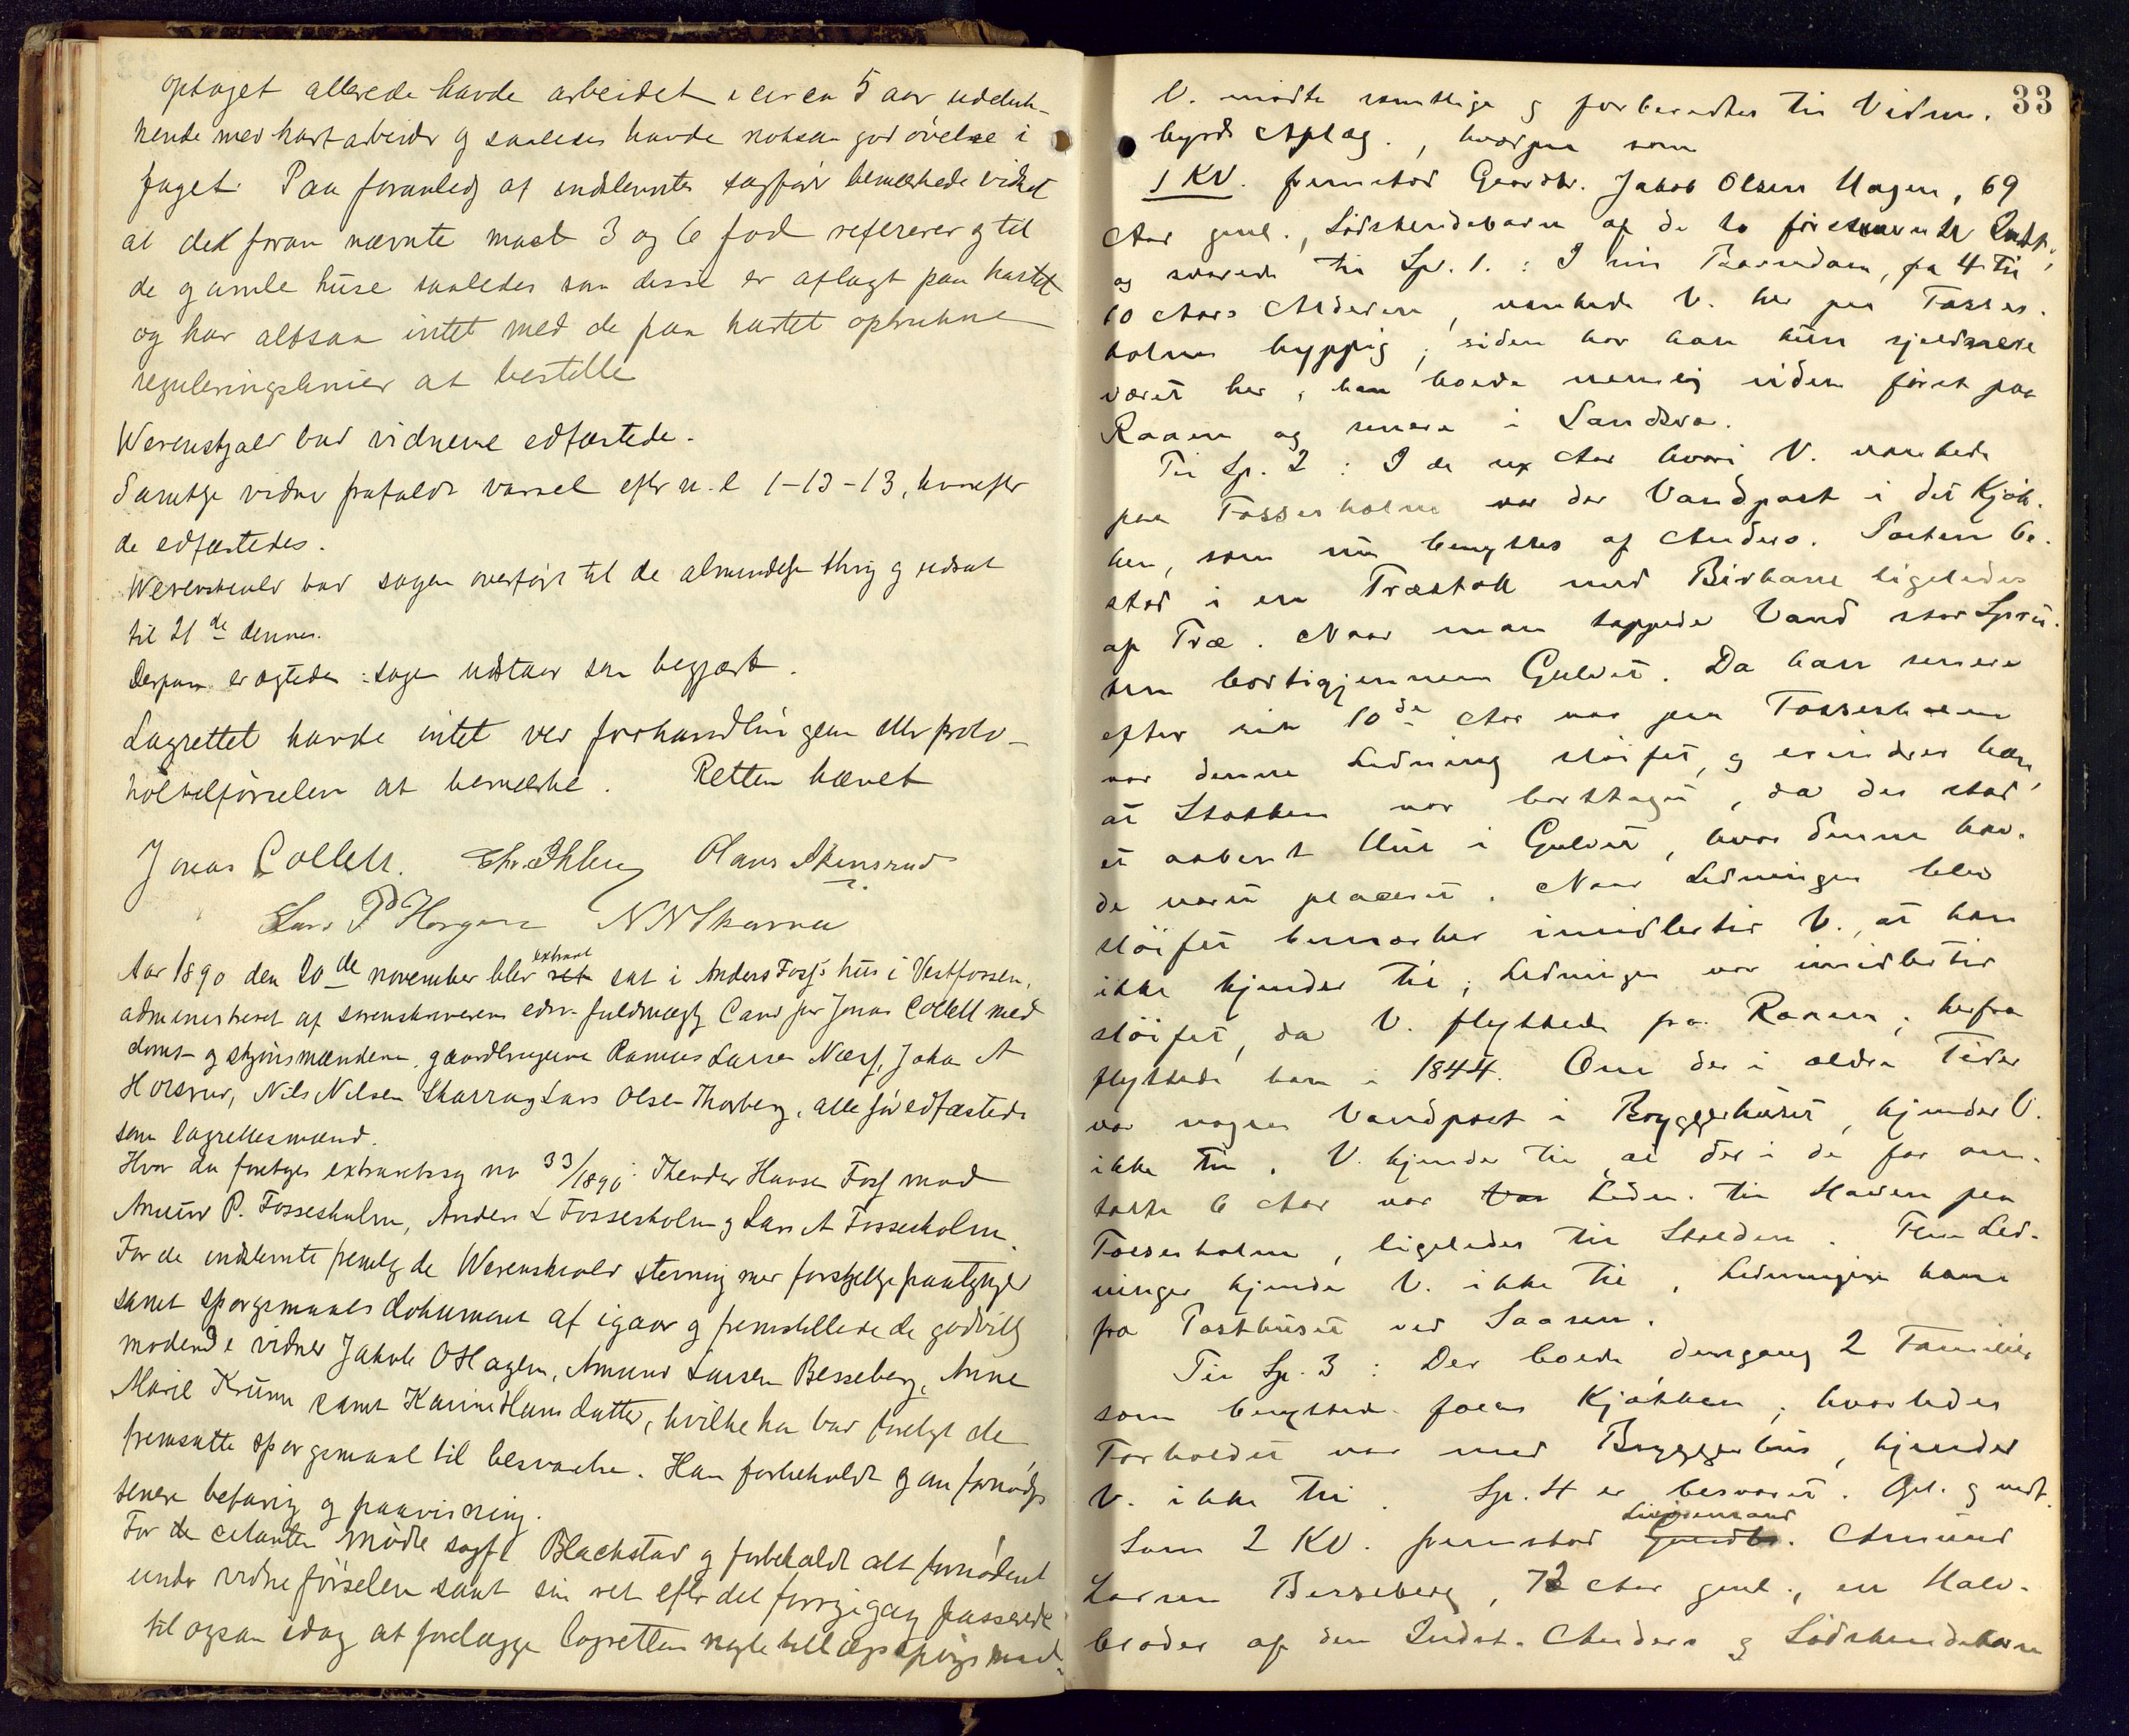 optaget allerede havde arbeidet i circa 5 aar udeluk-
kende med kartarbeider og saaledes havde noksaa god øvelse i
faget. Paa foranledg af indstevnte sagfører bemærkede vidnet
at det foran nævnte maal 3 og 6 fod refererer sig til
de gamle huse saaledes som disse er aflagt paa kartet
og har altsaa intet med de paa kartet optrukne
reguleringslinier at bestille
Werenskjold bad vidnerne edfæstede.
Samtlge vidner frafaldt varsel efter n.l. 1-13-13, hvorefter
de edfæstedes.
Werenskiold bad sagen overført til de almindelige thing og udsat
til 21de dennes.
Derpaa eragtedes: sagen udstaar som begjært.
Lagrettet havde intet ved forhandlingen eller proto-
koltilførselen at bemærke. Retten hævet
Jonas Collett. Chr. Ihlen Olaus Stensrud
Lars P Horgen N N Skarra
extraret
Aar 1890 den 20de november blev ret sat i Anders Foss's hus i Vestfossen,
administreret af sorenskriverens edsv. fuldmægtg Cand jur Jonas Collett med
doms- og skjønsmændene, gaardbrugerne Rasmus Larsen Næss, Johan A
Horsrud, Nils Nilsen Skarra og Lars Olsen Thorberg, alle før edfæstede
som lagrettesmænd.
Hvor da foretages extraretssag no 33/1890: Theodor Hansen Foss mod
Amund P. Fossesholm, Anders L Fossesholm og Lars A Fossesholm.
For de indstevnte fremlagde Werenskiold stevning med forskjellige paategninger
samt spørgsmaals dokument af igaar og fremstillede de godvillig
mødende vidner Jakob O Hagen, Amund Larsen Besseberg, Anne
Marie Krumm samt Karine Hansdatter, hvilke han bad forelagt de
fremsatte spørgsmaal til besvarelse. Han forbeholdt sig om fornødigt
senere befaring og paavisning.
For de citanten mødte sagf. Blackstad og forbeholdt alt fornødent
under vidneførselen samt sin ret efter det forrige gang passerede
til ogsaa idag at forelægge lagretten nogle tillægsspørgsmaal.
33
V. mødte samtlige og forberedtes til Vidne-
byrds Aflæg., hvorpaa som
1 KV. fremstod Gaardbr. Jakob Olsen Hagen, 69
Aar gml., Sødskendebarn af de to førstnævnte Indst.,
og svarede til Sp. 1. : I sin Barndom, fra 4 til
10 Aars Alderen, vankede V. her paa Fosses-
holm hyppig; siden har han kun sjeldnere
været her, han boede nemlig siden først paa
Raaen og senere i Sandsvær.
Til Sp. 2 : I de sex Aar hvori V. vankede
paa Fossesholm var der Vandpost i det Kjøk-
ken, som nu benyttes af Anders. Posten be-
stod i en Træstok med Bivhane ligeledes
af Træ. Naar man tappede Vand stod Sprø-
ten bortigjennem Gulvet. Da han senere
efter sit 10de Aar var paa Fossesholm
var denne Ledning sløifet, og erindrer han,
at Stokken var borttaget, da der stod
et aabent Hul i Gulvet, hvor denne hav-
de været placeret. Naar Ledningen blev
sløifet bemærker imidlertid V., at han
ikke kjender til; Ledningen var imidlertid
sløifet, da V. flyttede fra Raaen; herfra
flyttede han i 1844. Om der i ældre Tider
var nogen Vandpost i Bryggerhuset, kjender V.
ikke til. V. kjender til at der i de før om-
talte 6 Aar var Van Ledn. til Haven paa
Fossesholm, ligeledes til Stalden. Flere Led-
ninger kjender V. ikke til, Ledningerne kom
fra Posthuset ved Saasen.
Til Sp. 3 : Der boede dengang 2 Familier
som benyttede fælles Kjøkken; hvorledes
Forholdet var med Bryggerhus, kjender
V. ikke til. Sp. 4 er besvaret. Opl. og vedt.
Inderstmand
Som 2 KV. fremstod Gaardbr. Amund
Larsen Besseberg, 72 Aar gml., en Halv-
broder af den Indst. Anders og Sødskendebarn